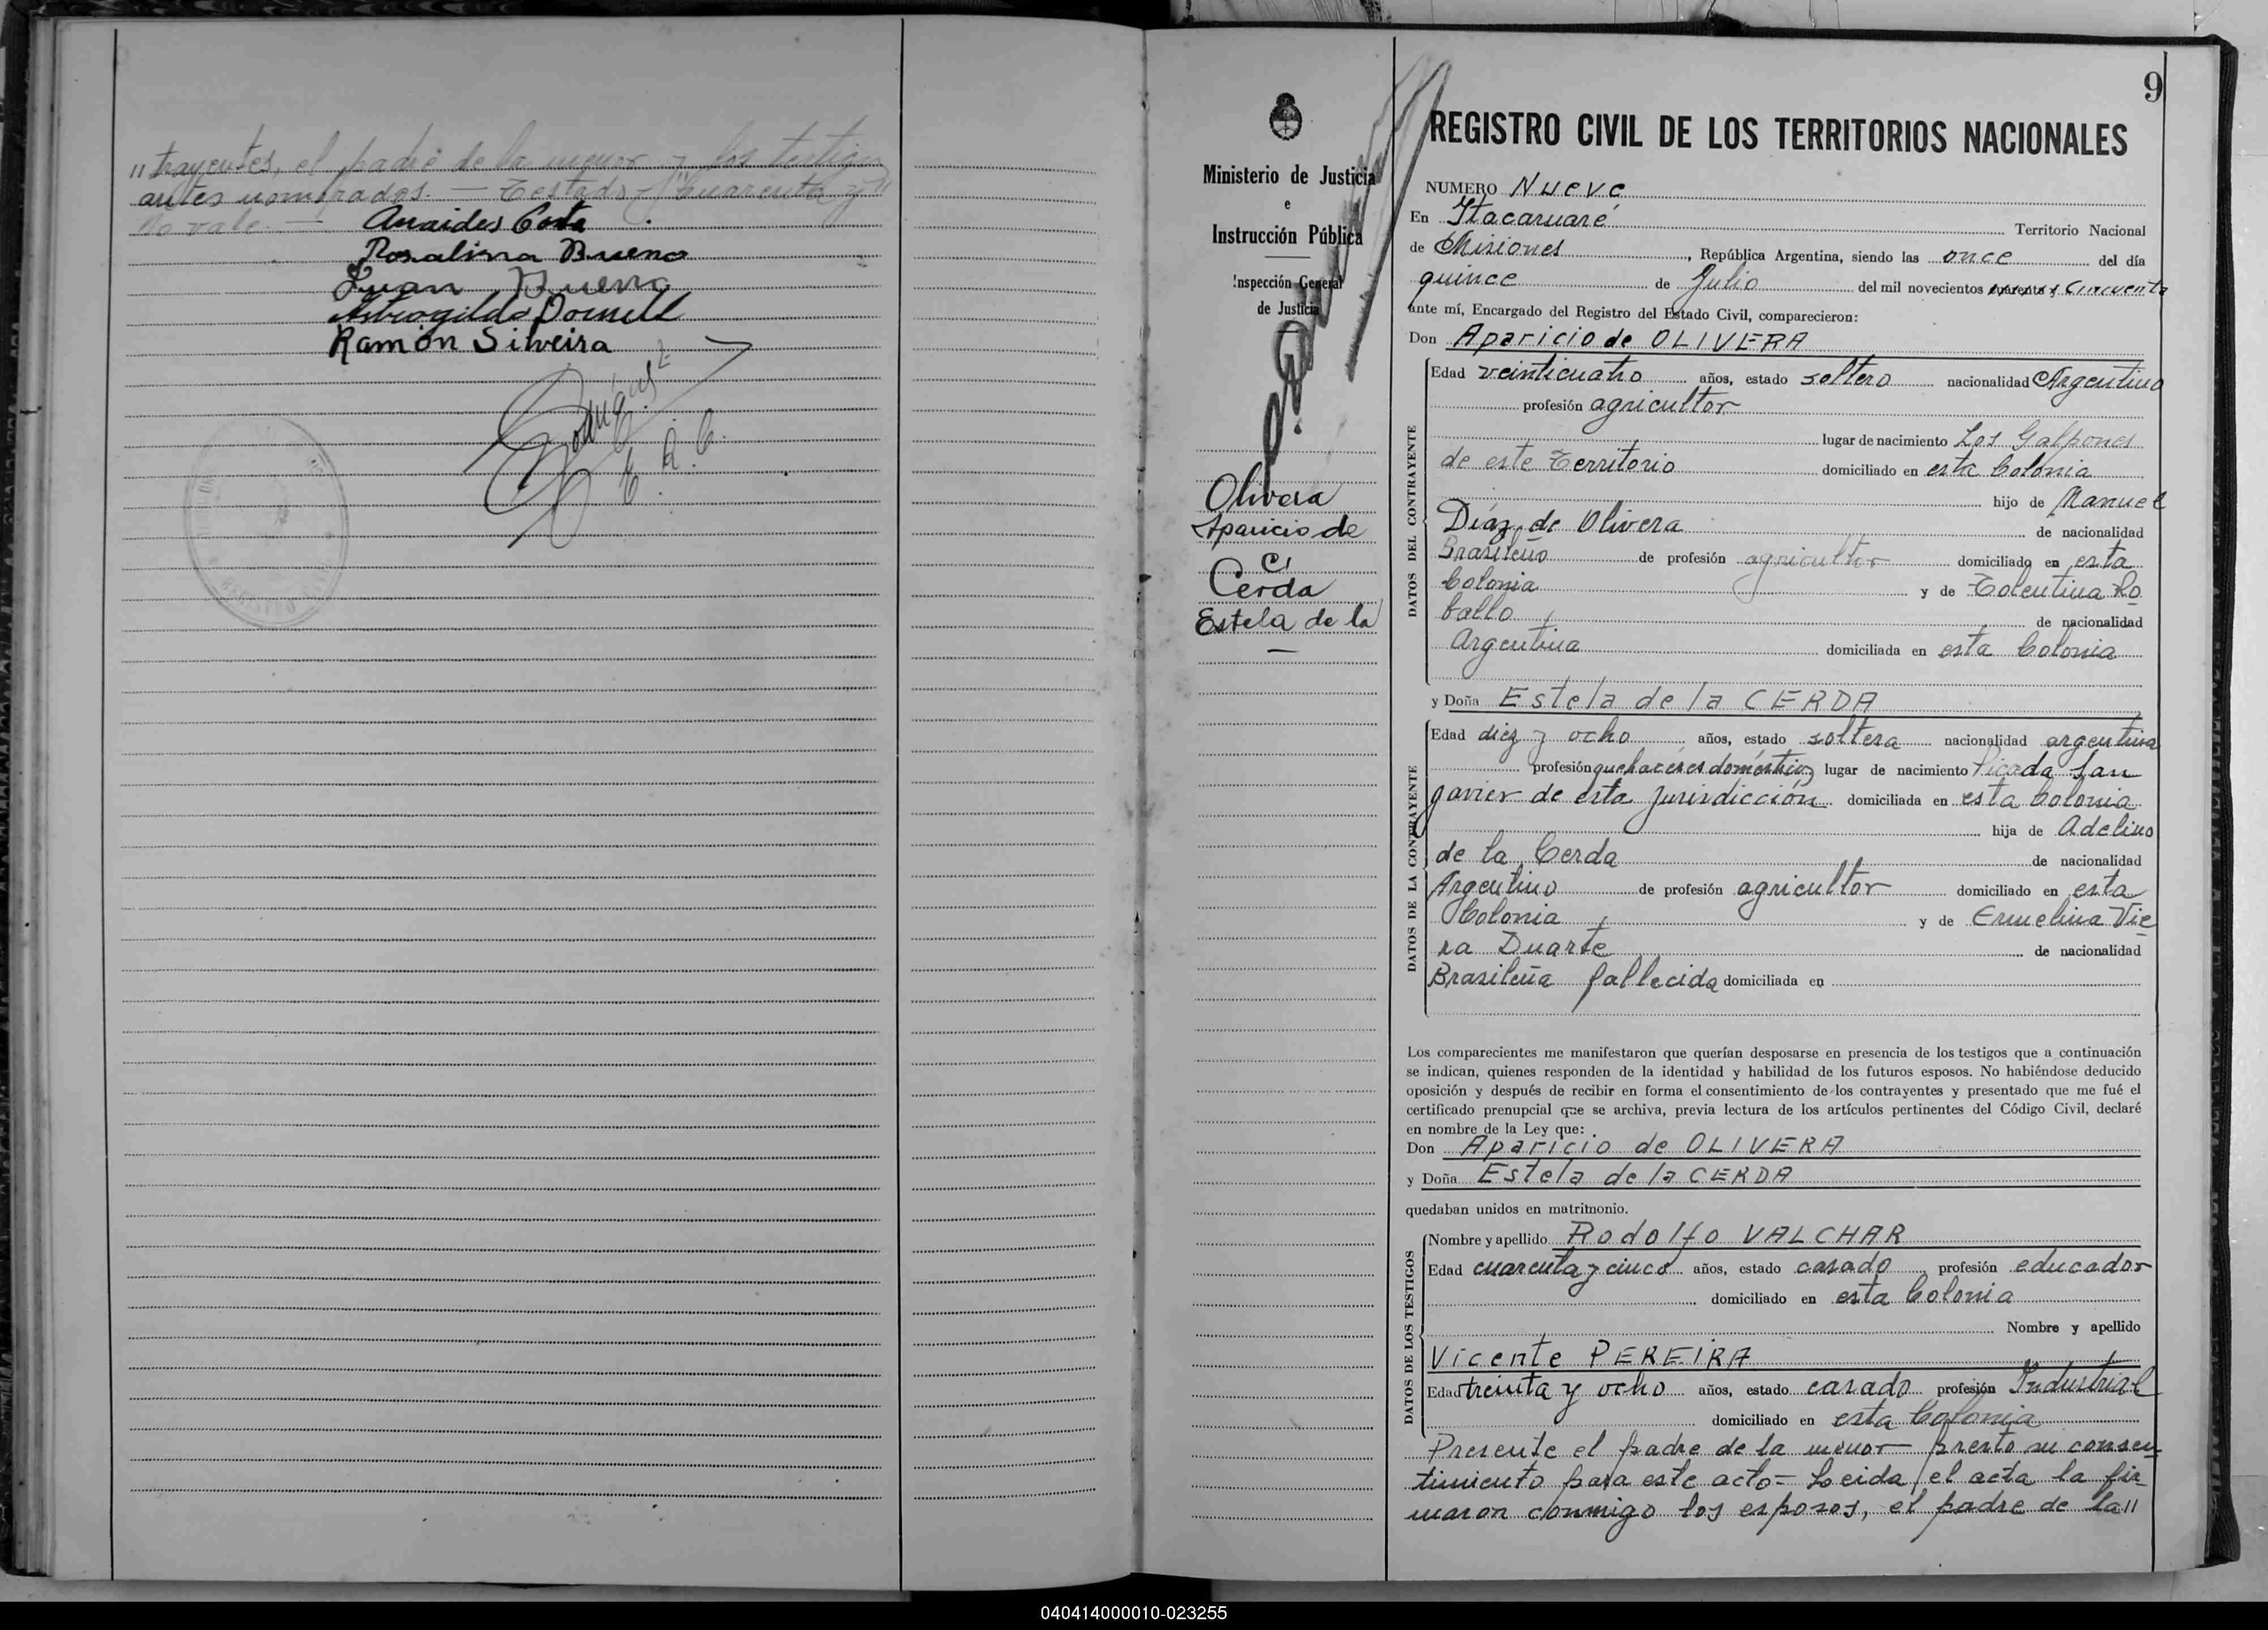 "trayentes, el padre de la menor y los testigos
antes nombrados. — Testado "cuarenta y"
No vale. —
Anaides Costa
Rosalina Bueno
Juan Bueno
Dornell
Ramón Silveira
E. R. C.
9
Ministerio de Justicia
e
Instrucción Pública
Inspección General
de Justicia
Olivera
Aparicio de
c/
Cerda
Estela de la
—
REGISTRO CIVIL DE LOS TERRITORIOS NACIONALES
NUMERO Nueve
En Itacaruaré Territorio Nacional
de Misiones, República Argentina, siendo las once del día
quince de Julio del mil novecientos cuarenta y cincuenta
ante mí, Encargado del Registro del Estado Civil, comparecieron:
Don Aparicio de OLIVERA
DATOS DEL CONTRAYENTE
Edad veinticuatro años, estado soltero nacionalidad Argentino
profesión agricultor
lugar de nacimiento Los Galpones
de este Territorio domiciliado en esta Colonia
hijo de Manuel
Díaz de Olivera de nacionalidad
Brasileño de profesión agricultor domiciliado en esta
Colonia y de Tolentina Ro
ballo de nacionalidad
Argentina domiciliada en esta Colonia
y Doña Estela de la CERDA
DATOS DE LA CONTRAYENTE
Edad diez y ocho años, estado soltera nacionalidad argentina
profesión quehaceres domésticos lugar de nacimiento Picada San
Javier de esta Jurisdicción domiciliada en esta Colonia
hija de Adelino
de la Cerda de nacionalidad
Argentino de profesión agricultor domiciliado en esta
Colonia y de Ermelina Vie
ra Duarte de nacionalidad
Brasileña fallecida domiciliada en
Los comparecientes me manifestaron que querían desposarse en presencia de los testigos que a continuación
se indican, quienes responden de la identidad y habilidad de los futuros esposos. No habiéndose deducido
oposición y después de recibir en forma el consentimiento de los contrayentes y presentado que me fué el
certificado prenupcial que se archiva, previa lectura de los artículos pertinentes del Código Civil, declaré
en nombre de la Ley que:
Don Aparicio de OLIVERA
y Doña Estela de la CERDA
quedaban unidos en matrimonio.
DATOS DE LOS TESTIGOS
Nombre y apellido Rodolfo VALCHAR
Edad cuarenta y cinco años, estado casado profesión educador
domiciliado en esta Colonia
Nombre y apellido
Vicente PEREIRA
Edad treinta y ocho años, estado casado profesión Industrial
domiciliado en esta Colonia
Presente el padre de la menor prestó su consen-
timiento para este acto= Leida el acta la fir-
maron conmigo los esposos, el padre de la "
040414000010-023255